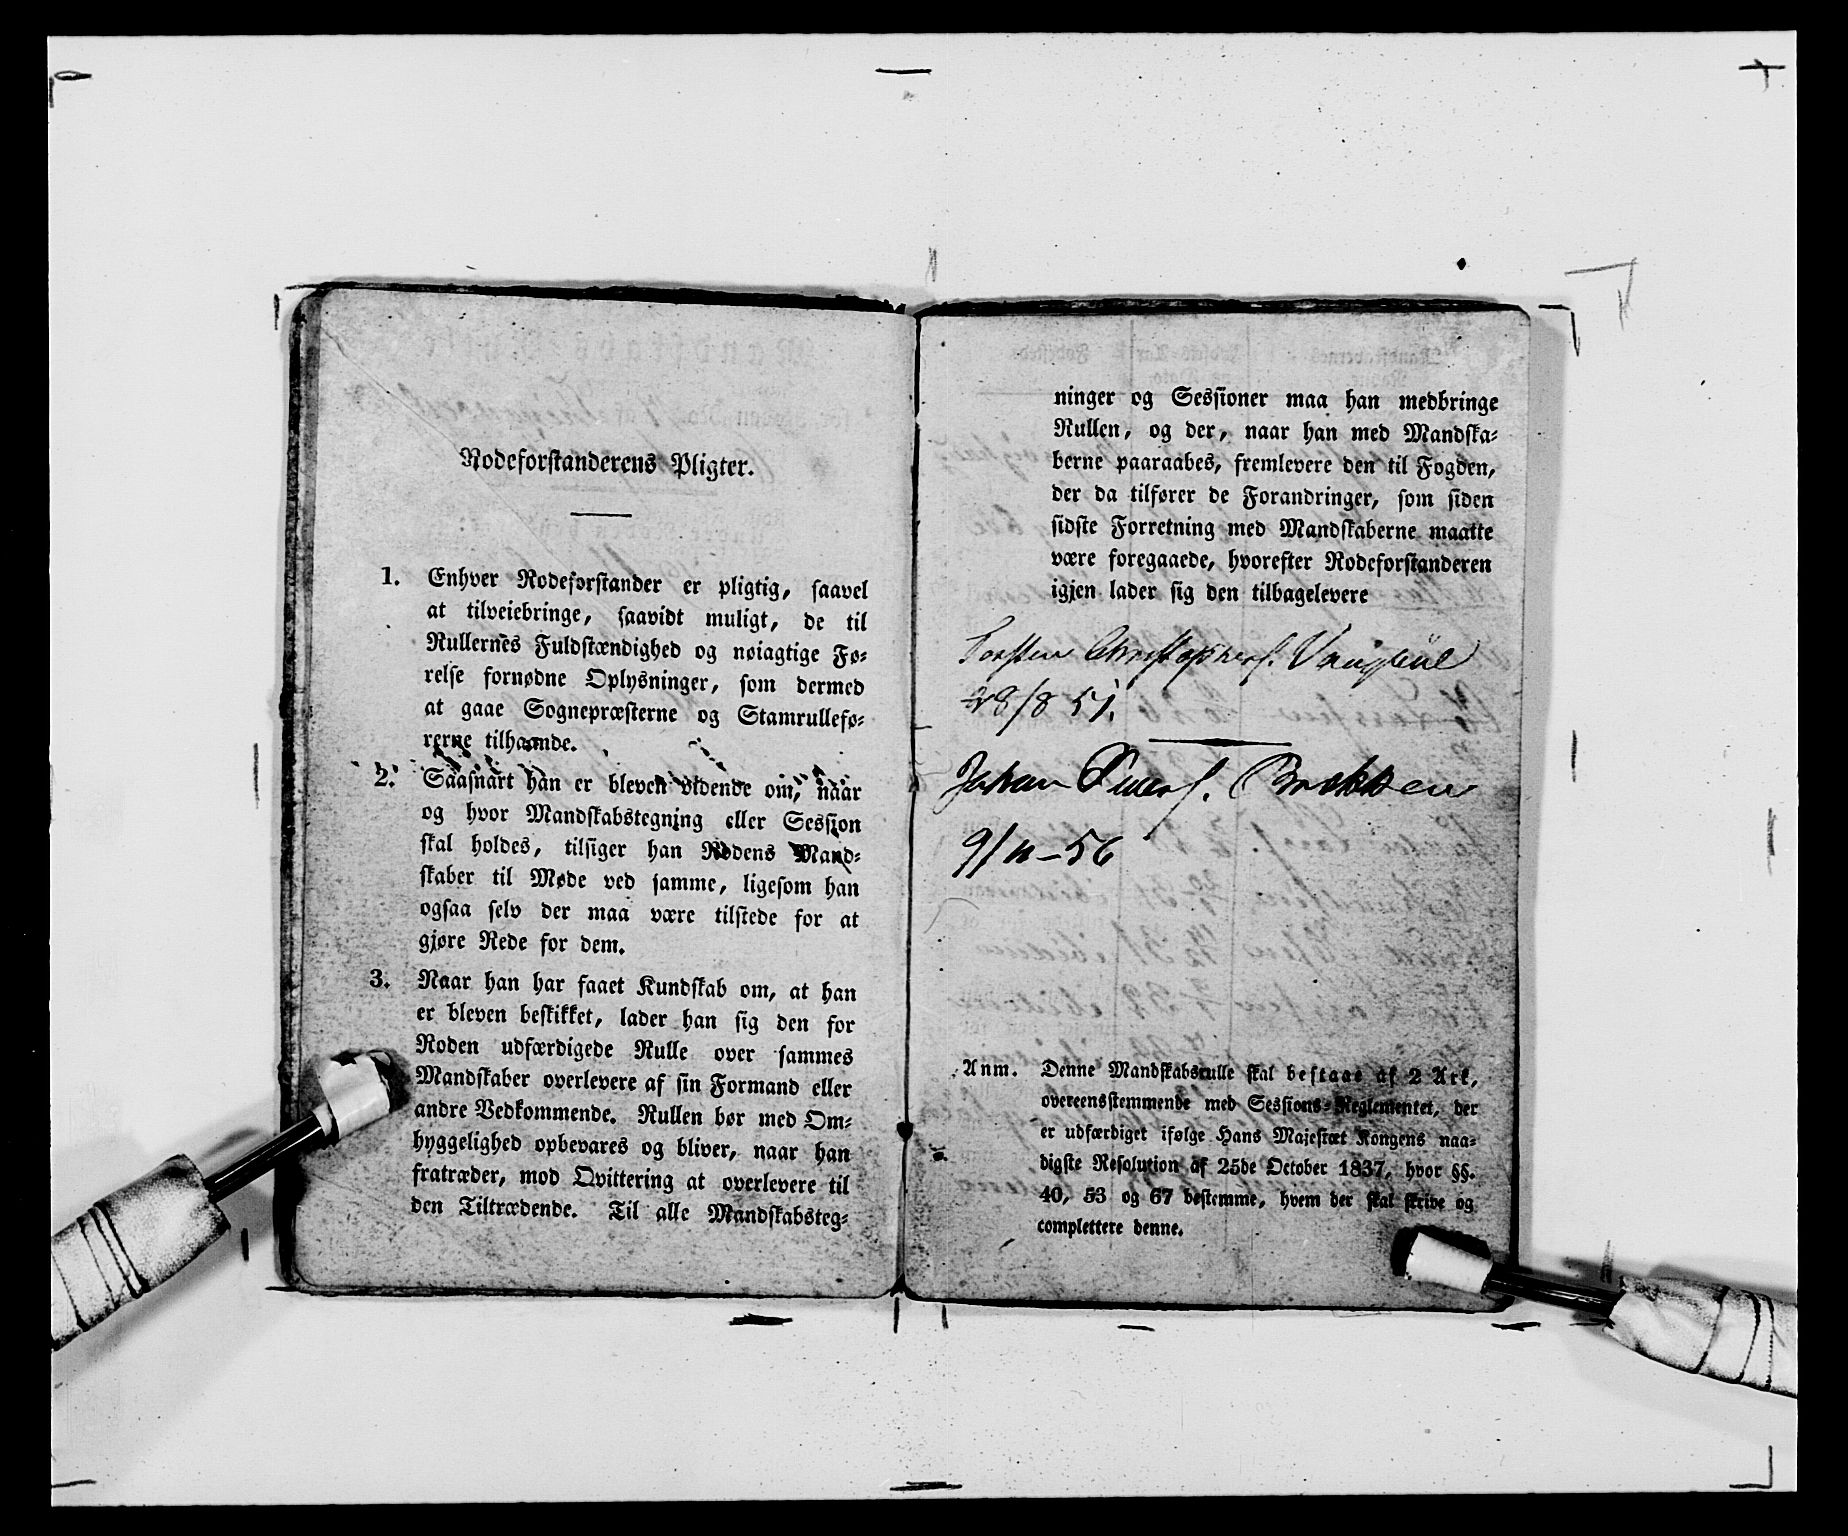 Rodeforstanderens Pligter.
1. Enhver Rodeforstander er pligtig, saavel
at tilveiebringe, saavidt muligt, de til
Rullernes Fuldstændighed og nøiagtige Fø-
relse fornødne Oplysninger, som dermed
at gaae Sognepræsterne og Stamrullefø-
rerne tilhaande.
2. Saasnart han er bleven vidende om, naar
og hvor Mandskabstegning eller Session
skal holdes, tilsiger han Rodens Mand-
skaber til Møde ved samme, ligesom han
ogsaa selv der maa være tilstede for at
gjøre Rede for dem.
3. Naar han har faaet Kundskab om, at han
er bleven beskikket, lader han sig den for
Roden udfærdigede Rulle over sammes
Mandskaber overlevere af sin Formand eller
andre Vedkommende. Rullen bør med Om-
hyggelighed opbevares og bliver, naar han
fratræder, mod Qvittering at overlevere til
den Tiltrædende. Til alle Mandskabsteg-
ninger og Sessioner maa han medbringe
Rullen, og der, naar han med Mandska-
berne paaraabes, fremlevere den til Fogden,
der da tilfører de Forandringer, som siden
sidste Forretning med Mandskaberne maatte
være foregaaede, hvorefter Rodeforstanderen
igjen lader sig den tilbagelevere
Torsten Christophers.
28/8 51.
Johan
9/11-56
Anm. Denne Mandskabsrulle skal bestaae af 2 Ark,
overeensstemmende med Sessions-Reglementet, der
er udfærdiget ifølge Hans Majestæt Kongens naa-
digste Resolution af 25de October 1837, hvor §§.
40, 53 og 67 bestemme, hvem der skal skrive og
complettere denne.